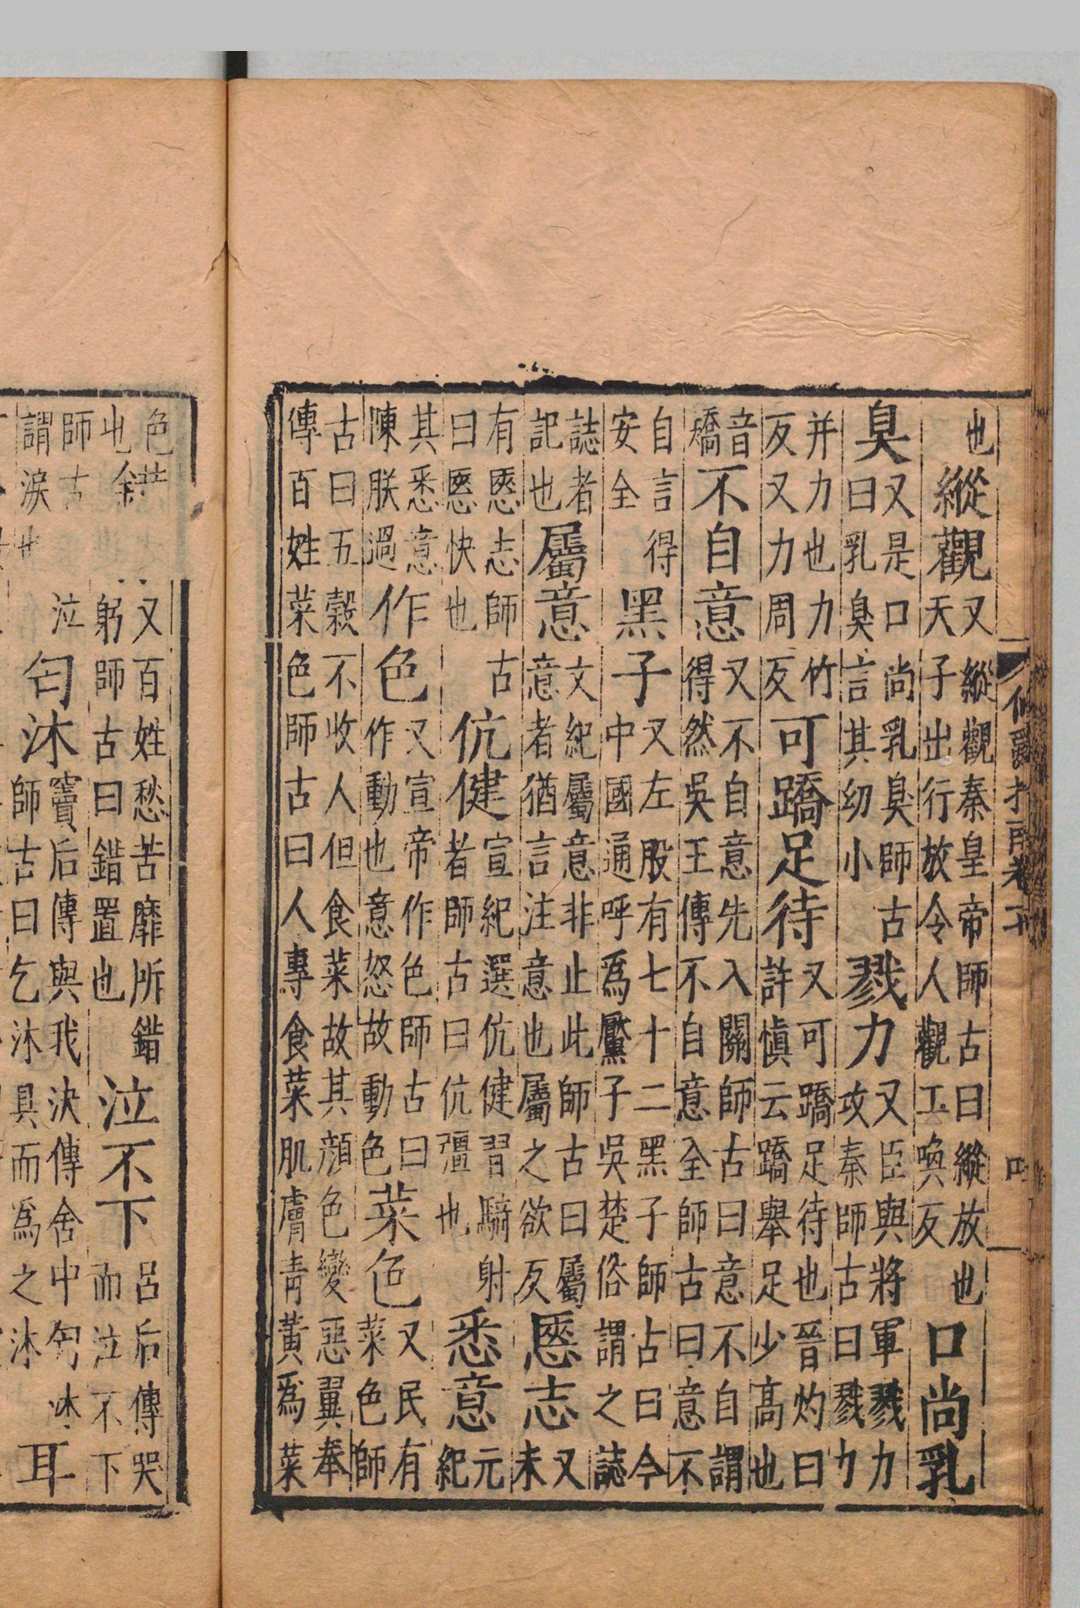 也
縱觀
又縱觀秦皇帝師古曰縱放也
天子出行放令人觀工喚反
口尚乳
臭
又是口尚乳臭師古
曰乳臭言其幼小
戮力
又臣與將軍戮力
攻秦師古曰戮力
并力也力竹
反又力周反
可蹻足待
又可蹻足待也晉灼曰
許慎云蹻舉足少高也
音
矯
不自意
又不自意先入關師古曰意不自謂
得然吳王傳不自意全師古曰意不
自言得
安全
黑子
又左股有七十二黑子師古曰今
中國通呼爲黶子吳楚俗謂之誌
誌者
記也
屬意
文紀屬意非止此師古曰屬
意者猶言注意也屬之欲反
㥦志
又
未
有㥦志師古
曰㥦快也
伉健
宣紀選伉健習騎射
者師古曰伉彊也
悉意
元
紀
其悉意
陳朕過
作色
又宣帝作色師古曰
作動也意怒故動色
菜色
又民有
菜色師
古曰五穀不收人但食菜故其顏色變惡翼奉
傳百姓菜色師古曰人專食菜肌膚青黃爲菜
卷下
色
也
又百姓愁苦靡所錯
躬師古曰錯置也
泣不下
呂后傳哭
而泣不下
師古
泣
謂淚也
匃沐
竇后傳與我決傳舍中匃沐
師古曰乞沐具而爲之沐
耳